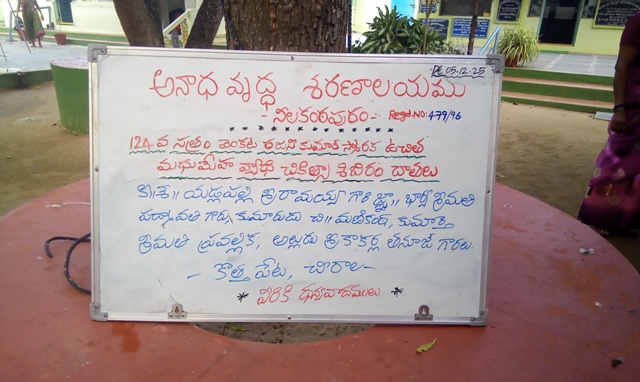 Dt 05-12-25
అనాధ వృద్ధ శరణాలయము
- నీలకంఠపురం - Regd.NO: 479/96
124 వ సత్రం వెంకట రజని కుమార్ స్మారక ఉచిత
మధుమేహ వ్యాధి చికిత్సా శిబిరం దాతలు
కీ॥శే॥ యర్లపల్లి శ్రీరామయ్య గారి జ్ఞా॥ భార్య శ్రీమతి
పద్మావతి గార్కు కుమారుడు చి॥ మణికంఠ, కుమార్తె
శ్రీమతి ప్రవల్లిక, అల్లుడు శ్రీ కాకర్ల తనూజ్ గార్లు.
- కొత్త పేట, చీరాల -
* వీరికి ధన్యవాదములు *